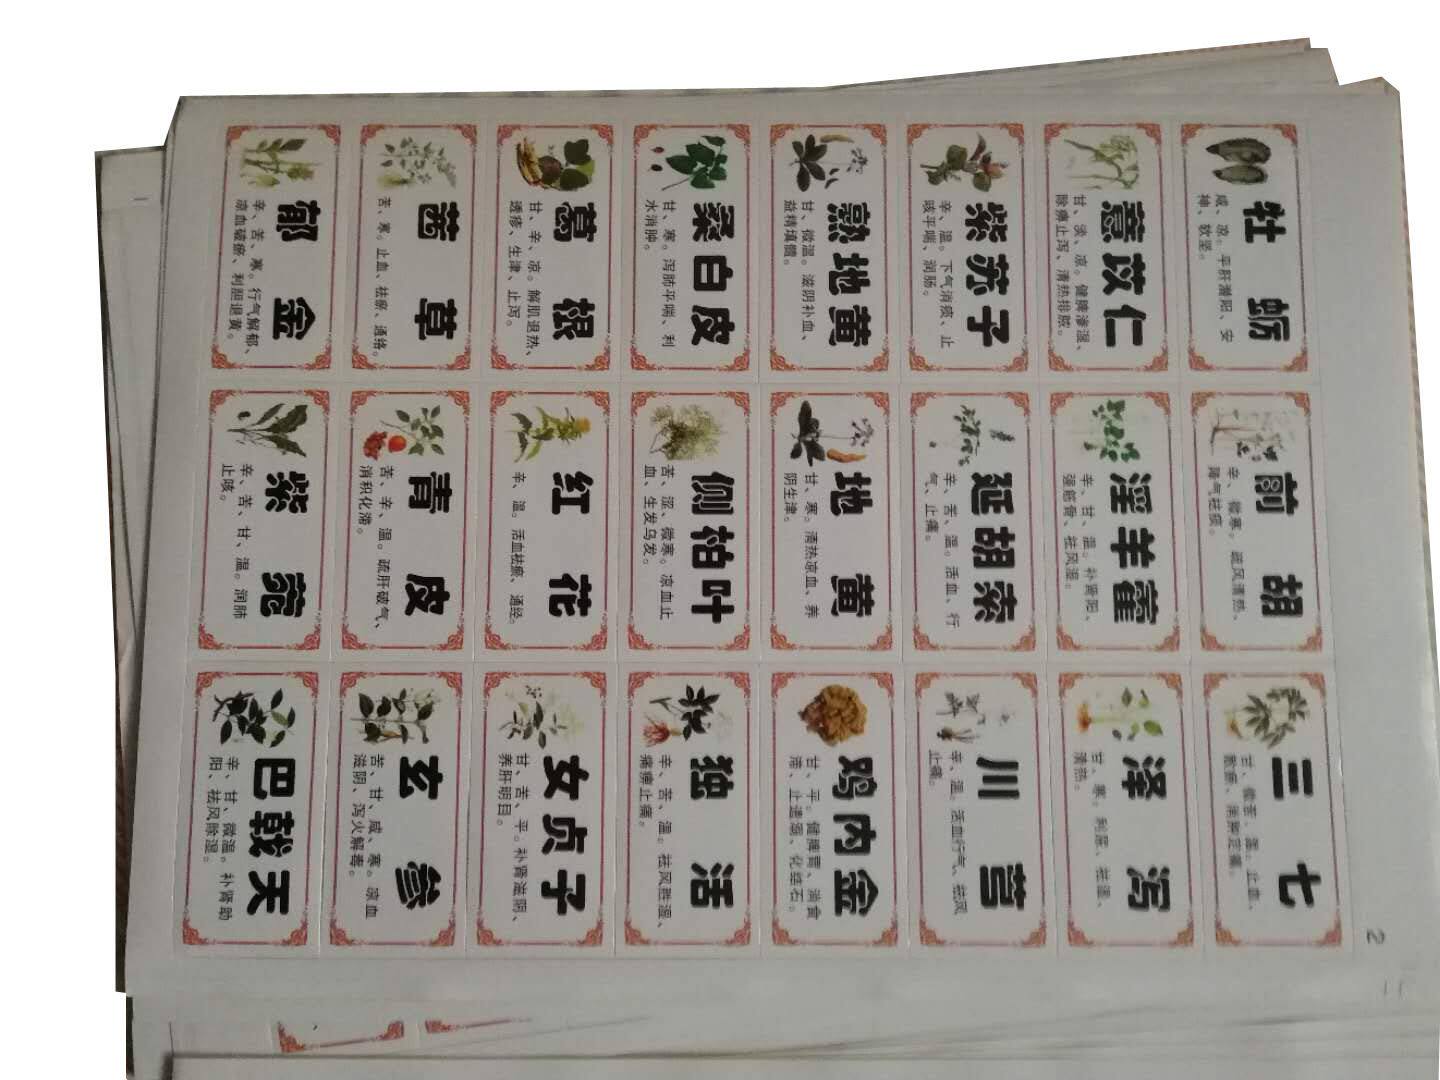 2
牡 蛎
咸、凉。平肝潜阳、安
神、软坚。
前 胡
辛、微寒。疏风清热、
降气祛痰。
三 七
甘、微苦、温。止血、
散瘀、消肿定痛。
薏苡仁
甘、淡、凉。健脾渗湿、
除痹止泻、清热排脓。
淫羊藿
辛、甘、温。补肾阳、
强筋骨、祛风湿。
泽 泻
甘、寒。利尿、渗湿、
清热。
紫苏子
辛、温。下气消痰、止
咳平喘、润肠。
延胡索
辛、苦、温。活血、行
气、止痛。
川 营
辛、温。活血行气、祛风
止痛。
熟地黄
甘、微温。滋阴补血、
益精填髓。
地 黄
甘、寒。清热凉血、养
阴生津。
鸡内金
甘、平。健脾胃、消食
滞、止遗溺、化结石。
桑白皮
甘、寒。泻肺平喘、利
水消肿。
侧柏叶
苦、涩、微寒。凉血止
血、生发乌发。
独 活
辛、苦、温。祛风胜湿、
痛痹止痛。
葛 根
甘、辛、凉。解肌退热、
透疹、生津、止泻。
红 花
辛、温。活血祛瘀、通经。
女贞子
甘、苦、平。补肾滋阴、
养肝明目。
茜 草
苦、寒。止血、祛瘀、通络。
青 皮
苦、辛、温。疏肝破气、
消积化滞。
玄 参
苦、甘、咸、寒。凉血
滋阴、泻火解毒。
郁 金
辛、苦、寒。行气解郁、
凉血破瘀、利胆退黄。
紫 菀
辛、苦、甘、温。润肺
止咳。
巴戟天
辛、甘、微温。补肾助
阳、祛风除湿。